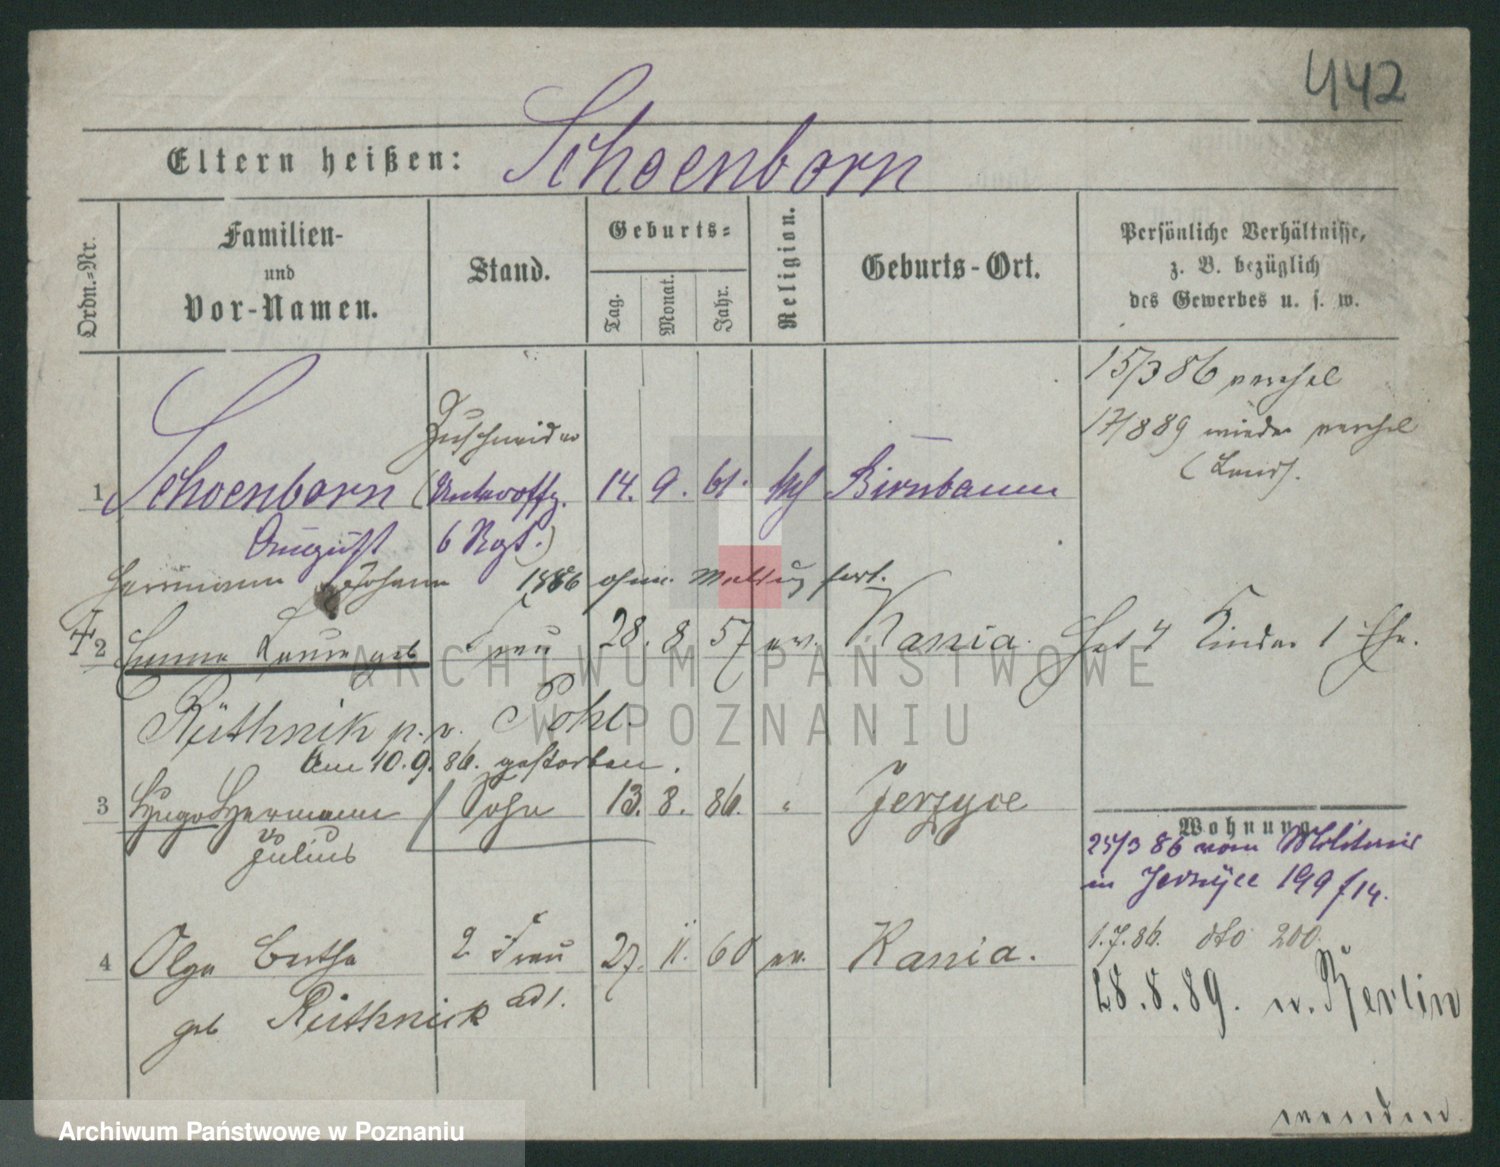 442
Eltern heißen: Schoenborn
Ordn.-Nr.
Familien-
und
Vor-Namen.
Stand.
Geburts-
Tag.
Monat.
Jahr.
Religion.
Geburts-Ort.
Persönliche Verhältnisse,
z. B. bezüglich
des Gewerbes u. s. w.
15/3 86 verehel
17/8 89 wieder verehel
(Land).
Zuschneider
1 Schoenborn (Unteroffz. 14. 9. 61. Birnbaum
August 6 Rgt.)
Herrmann Johann 1886 ohne Meldung fort.
2 Emma geb Frau 28. 8. 57 ev. Kania. Hat 4 Kinder 1 Ehe.
Rüthnik p. v. Pohl
Am 10.9.86. gestorben.
3 Hugo Hermann Sohn 13. 8. 86. " Jerzyce
Julius
Wohnung
25/3 86 vom Militair
in Jerzyce 199/14.
4 Olga Bertha 2. Frau 27. 11. 60 ev. Kania.
geb Rüthnick
1.7.86. dto 200.
28.8.89. n. Berlin
wenden
ARCHIWUM PAŃSTWOWE
W POZNANIU
Archiwum Państwowe w Poznaniu